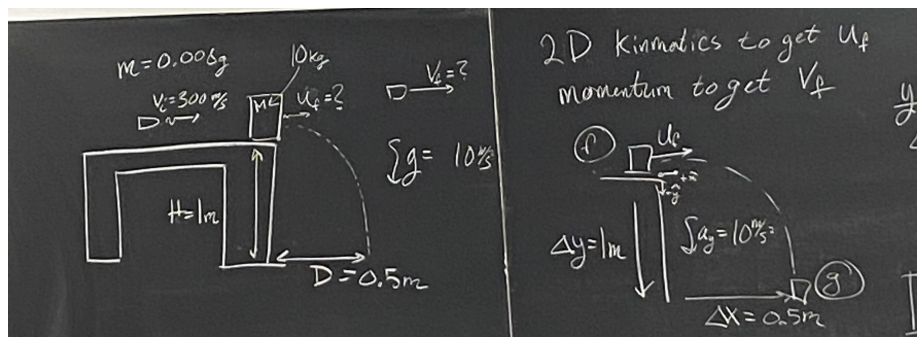 m=0.006g
10kg
Vi=300 m/s
M
Uf=?
Vf=?
g= 10 m/s
H=1m
D=0.5m
2D Kinmatics to get Uf
momentum to get Vf
f
Uf
+x
+y
Δy=1m
ay=10 m/s²
g
ΔX=0.5m
y